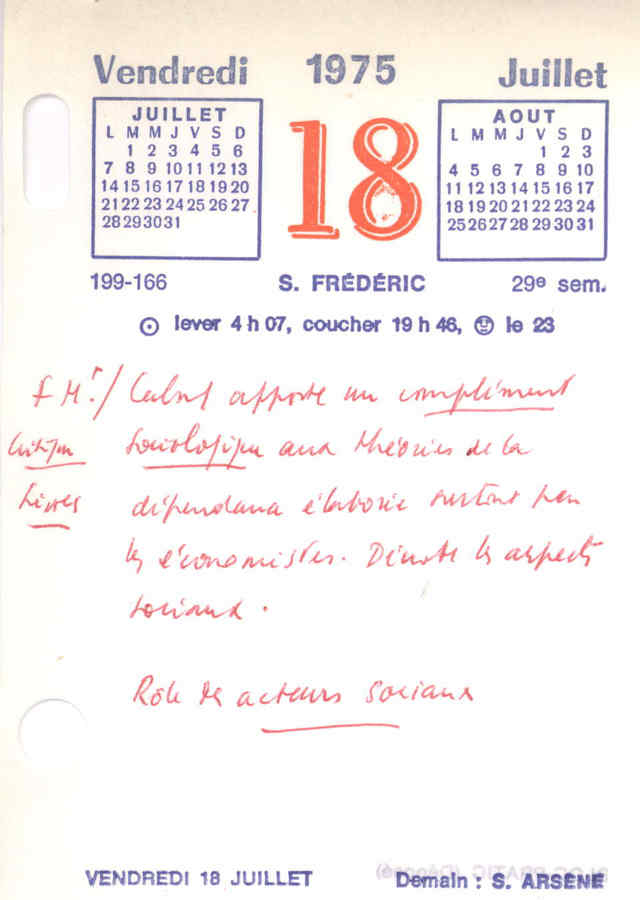 Vendredi 1975 Juillet
18
JUILLET
L M M J V S D
1 2 3 4 5 6
7 8 9 10 11 12 13
14 15 16 17 18 19 20
21 22 23 24 25 26 27
28 29 30 31
AOUT
L M M J V S D
1 2 3
4 5 6 7 8 9 10
11 12 13 14 15 16 17
18 19 20 21 22 23 24
25 26 27 28 29 30 31
199-166 S. FRÉDÉRIC 29e sem.
lever 4 h 07, coucher 19 h 46, le 23
apporte un complément
Critique sociologique aux théories de la
Livres dépendance élaborée surtout par
les économistes. les aspects
sociaux.
Role des acteurs sociaux
VENDREDI 18 JUILLET Demain : S. ARSÈNE